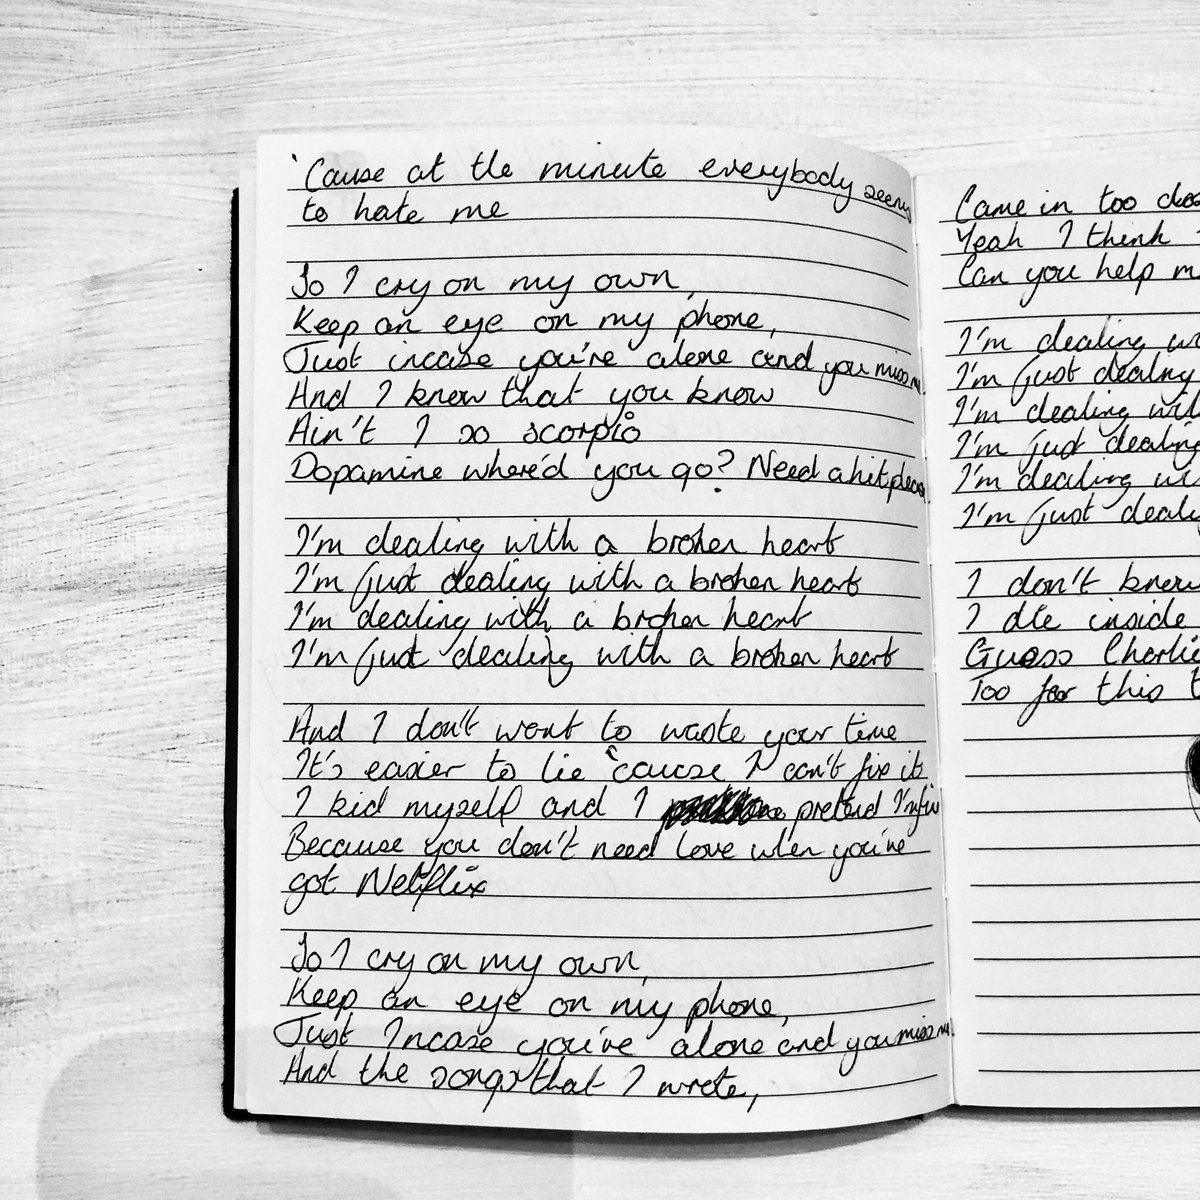 'Cause at the minute everybody seems
to hate me
So I cry on my own,
Keep an eye on my phone,
Just incase you're alone and you miss me.
And I know that you know
Ain't I so scorpio
Dopamine where'd you go? Need a hit please.
I'm dealing with a broken heart
I'm just dealing with a broken heart
I'm dealing with a broken heart
I'm just dealing with a broken heart
And I don't want to waste your time
It's easier to lie 'cause I can't fix it
I kid myself and I pretend I'm fin
Because you don't need love when you've
got Netflix
So I cry on my own,
Keep an eye on my phone,
Just Incase you're alone and you miss me.
And the songs that I wrote,
Came in too clos
Yeah I think
Can you help m
I'm dealing wi
I'm just dealing
I'm dealing wit
I'm just dealing
I'm dealing wi
I'm just deali
I don't know
I die inside
Guess Charlie
Too for this t